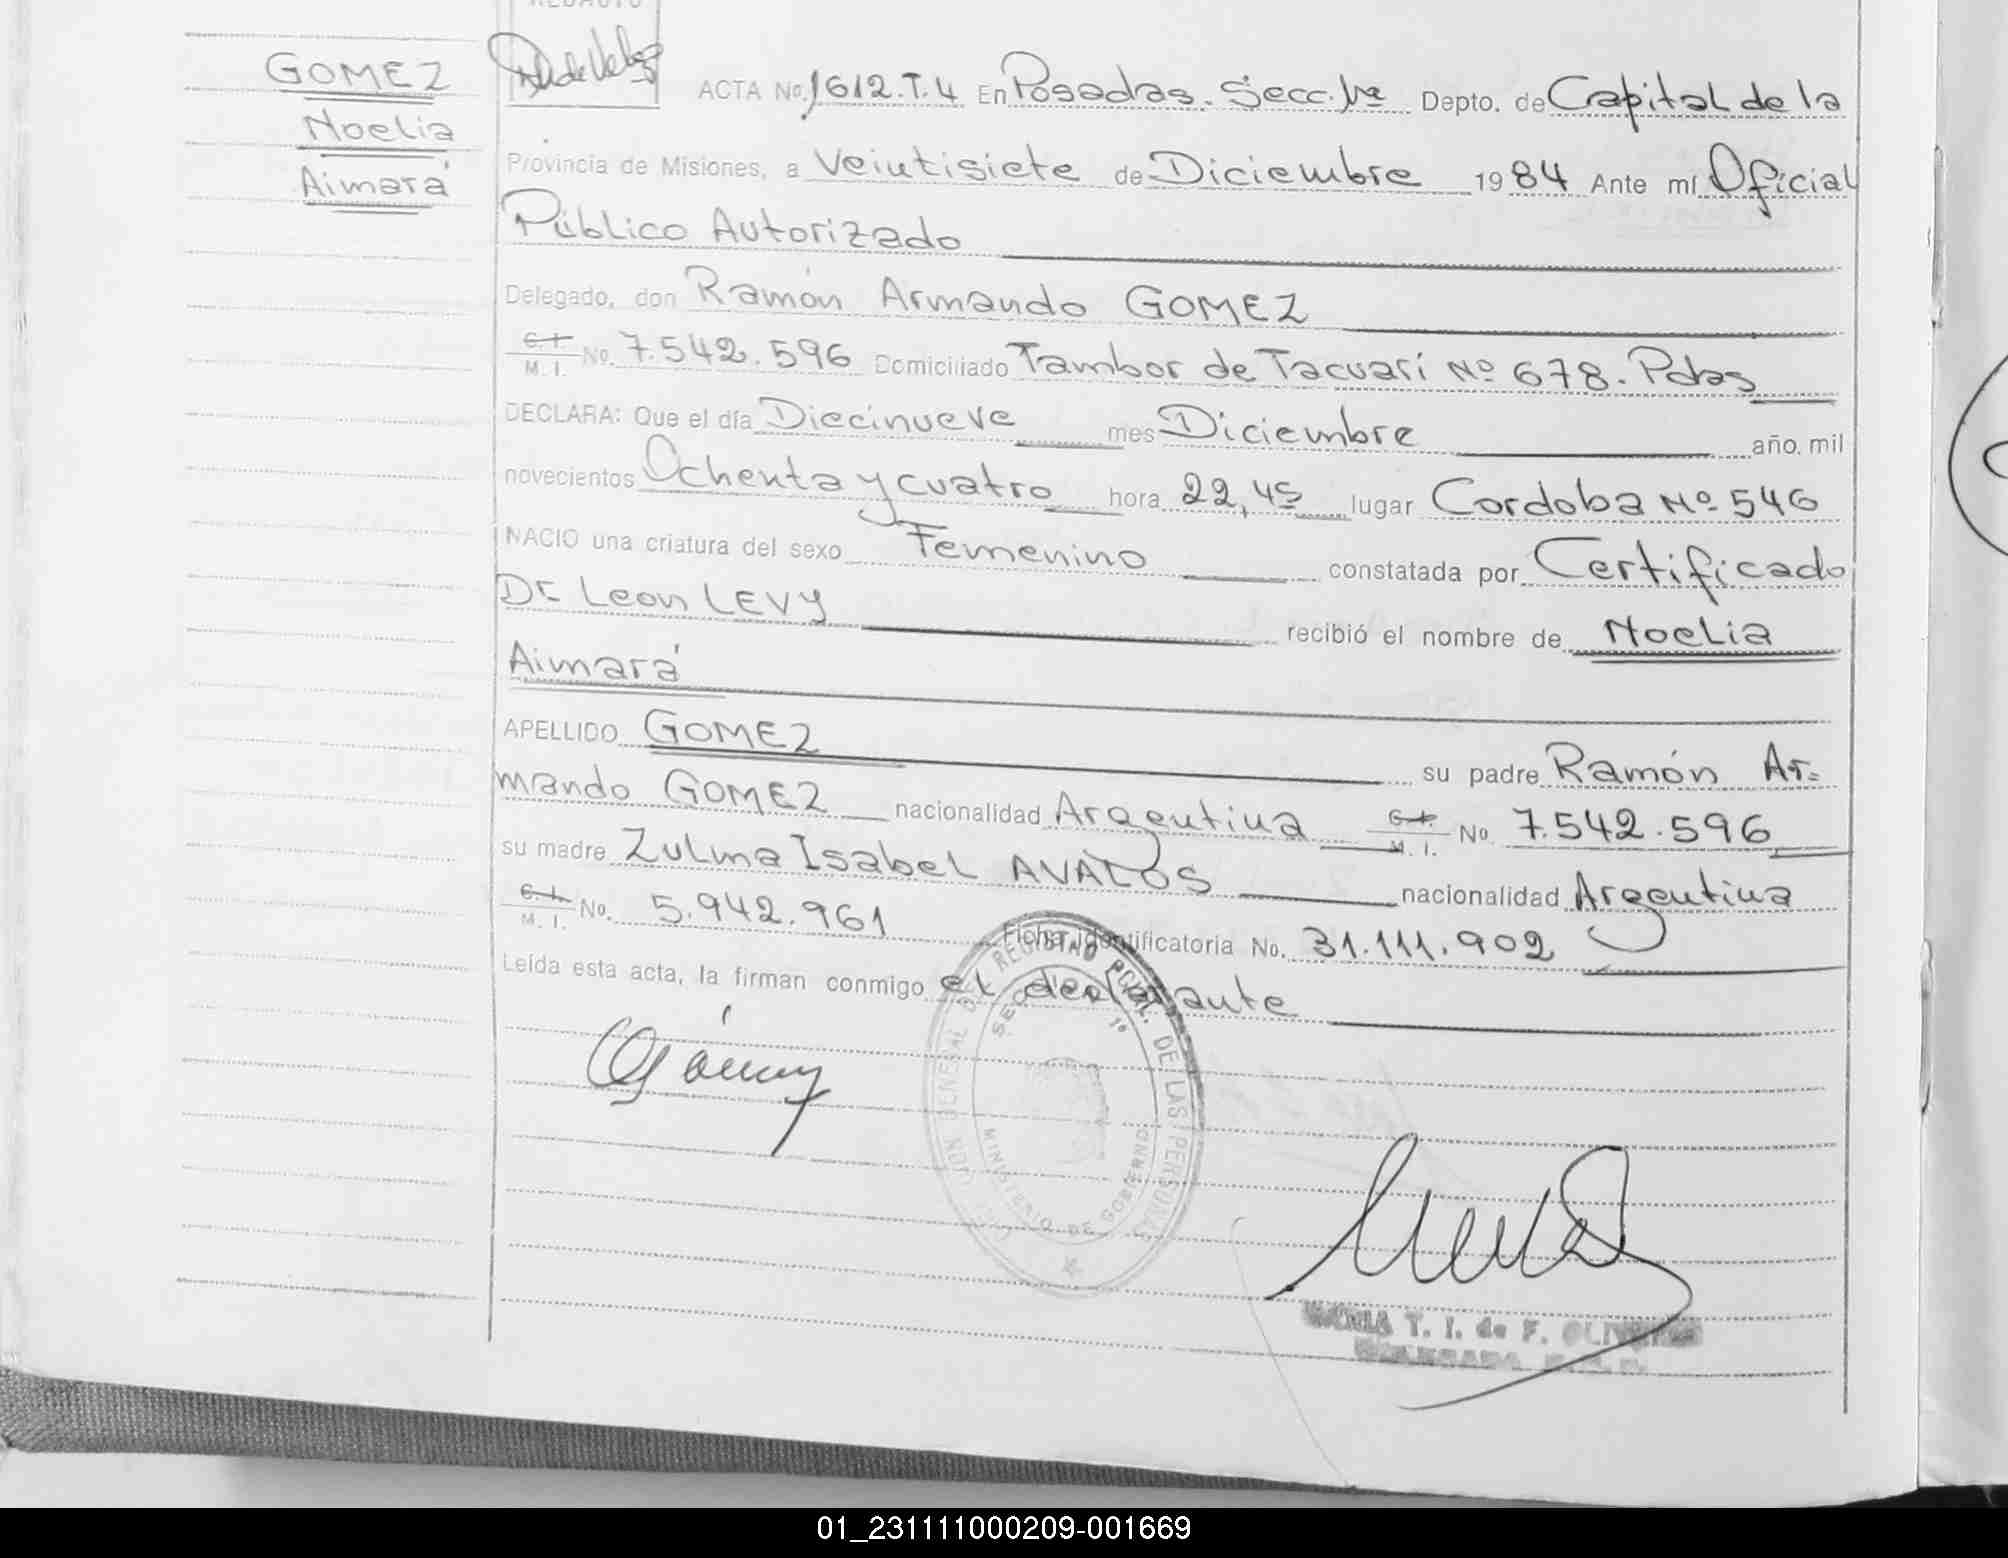 REDACTO
GOMEZ
Noelia
Aimará
ACTA No. 1612.T.4 En Posadas. Secc. 1ra Depto. de Capital de la
Provincia de Misiones, a Veintisiete de Diciembre 1984 Ante mí Oficial
Público Autorizado
Delegado, don Ramón Armando GOMEZ
C.I. M.I. No. 7.542.596 Domiciliado Tambor de Tacuarí Nº 678. Pdas
DECLARA: Que el día Diecinueve mes Diciembre año, mil
novecientos Ochenta y cuatro hora 22,45 lugar Cordoba Nº 546
NACIO una criatura del sexo Femenino constatada por Certificado
Dr Leon LEVY recibió el nombre de Noelia
Aimará
APELLIDO GOMEZ su padre Ramón Ar=
mando GOMEZ nacionalidad Argentina C.I. M.I. No. 7.542.596
su madre Zulma Isabel AVALOS nacionalidad Argentina
C.I. M.I. No. 5.942.961 Ficha identificatoria No. 31.111.902
Leída esta acta, la firman conmigo el declarante
GENERAL DEL REGISTRO PCIAL. DE LAS PERSONAS
SECCION 1º
MINISTERIO DE GOBIERNO
T. I. de F.
01_231111000209-001669